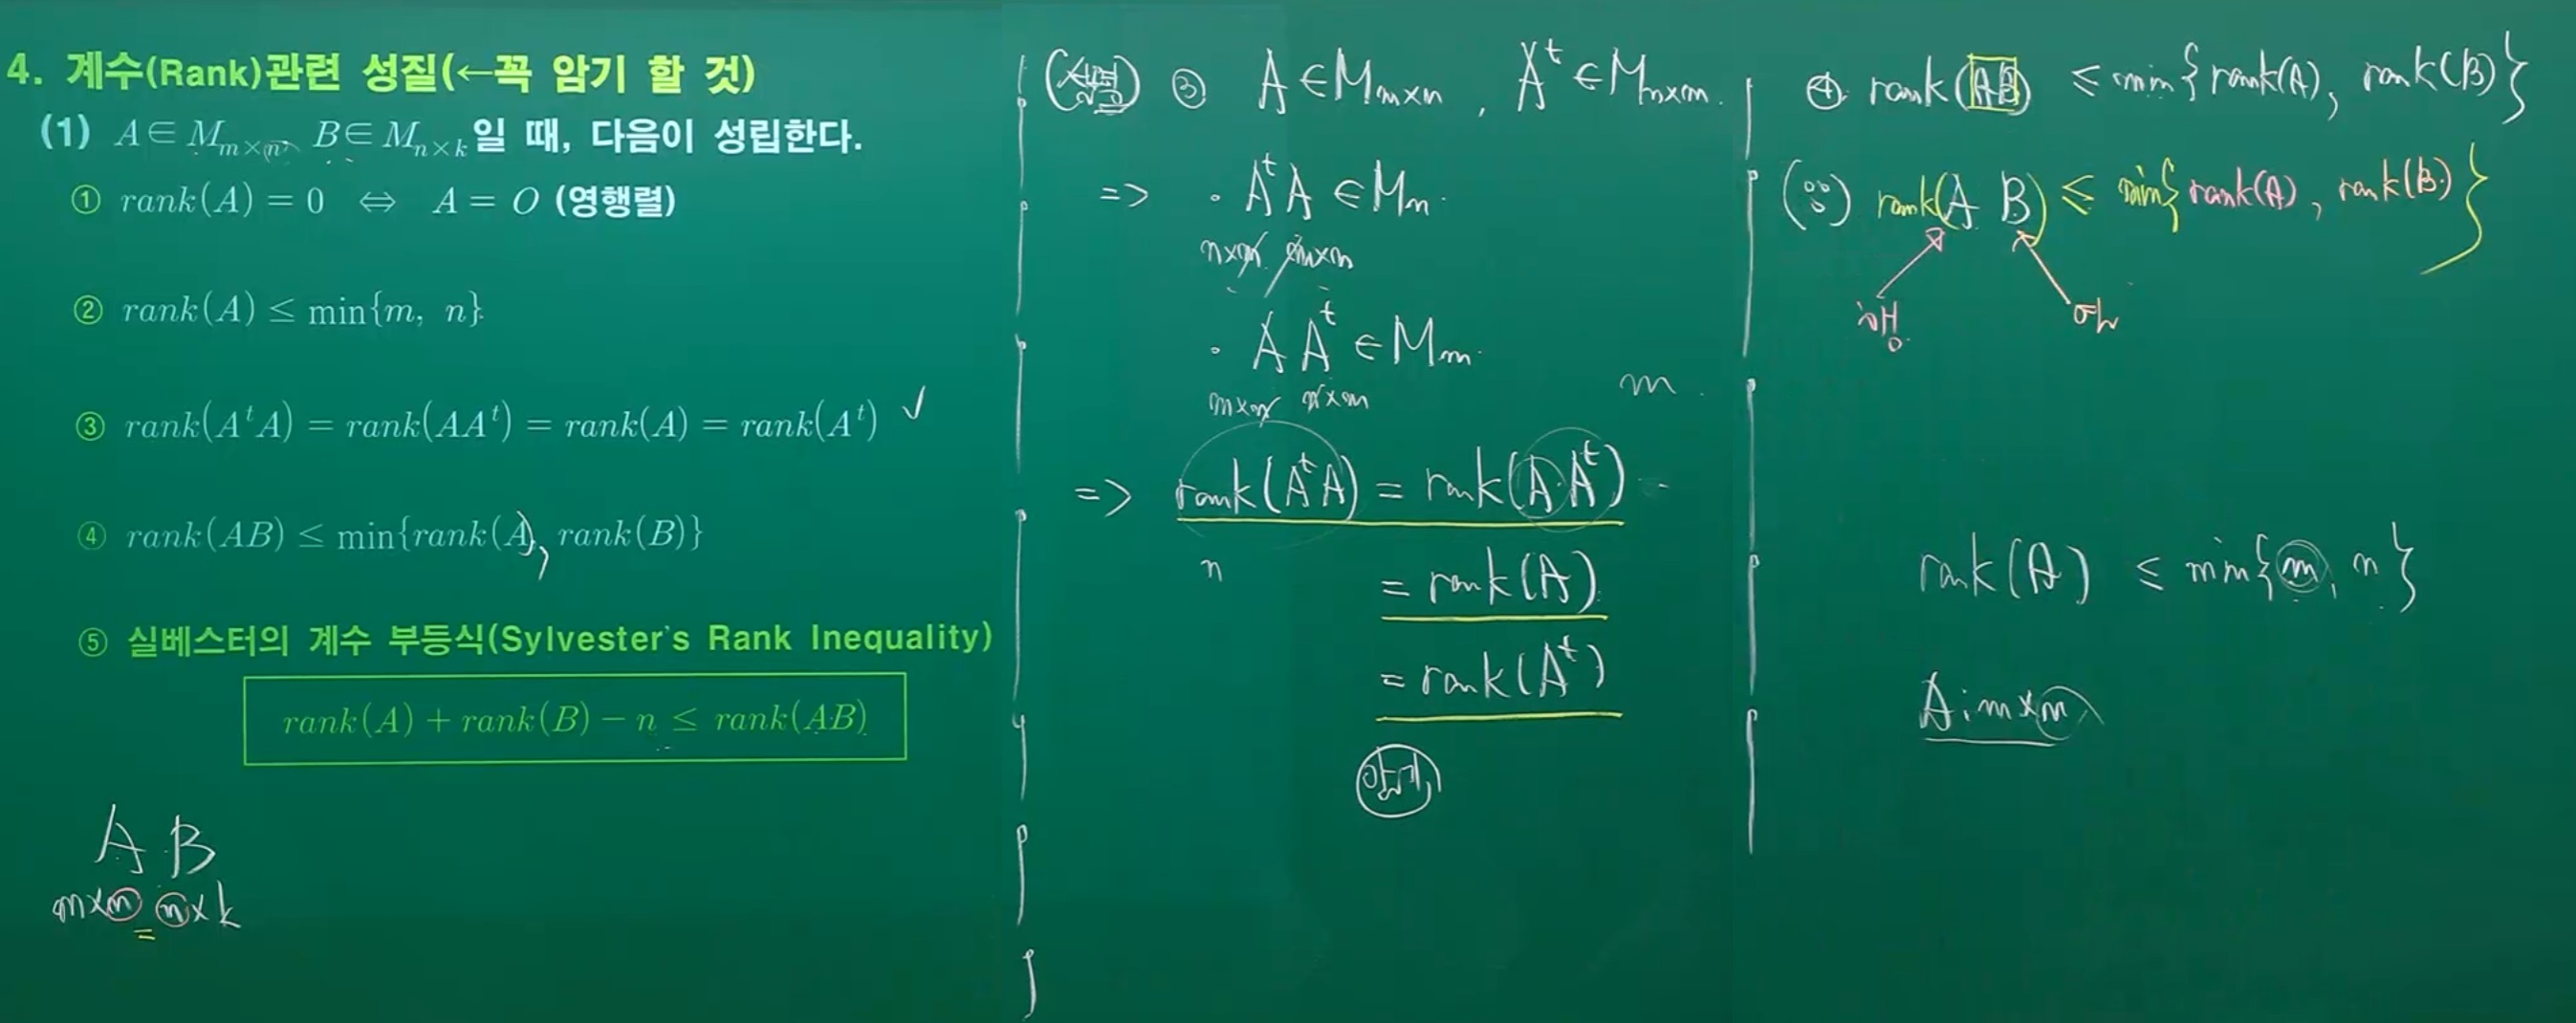 4. 계수(Rank)관련 성질(←꼭 암기 할 것)
(1) A∈M_{m×n}, B∈M_{n×k}일 때, 다음이 성립한다.
① rank(A) = 0 ⇔ A = O (영행렬)
② rank(A) ≤ min{m, n}
③ rank(A^tA) = rank(AA^t) = rank(A) = rank(A^t) ✓
④ rank(AB) ≤ min{rank(A), rank(B)}
⑤ 실베스터의 계수 부등식(Sylvester's Rank Inequality)
rank(A) + rank(B) − n ≤ rank(AB)
A B
m×n n×k
=
(설명) ③ A∈M_{m×n}, A^t∈M_{n×m}.
=> · A^tA ∈M_n.
n×m m×n
· A A^t ∈M_m.
m×n n×m
m.
=> rank(A^tA) = rank(A A^t)
n
= rank(A).
= rank(A^t)
암기
④. rank(AB) ≤ min{rank(A), rank(B)}
(∵) rank(A B) ≤ min{rank(A), rank(B)}
rank(A) ≤ min{m, n}
A : m×n